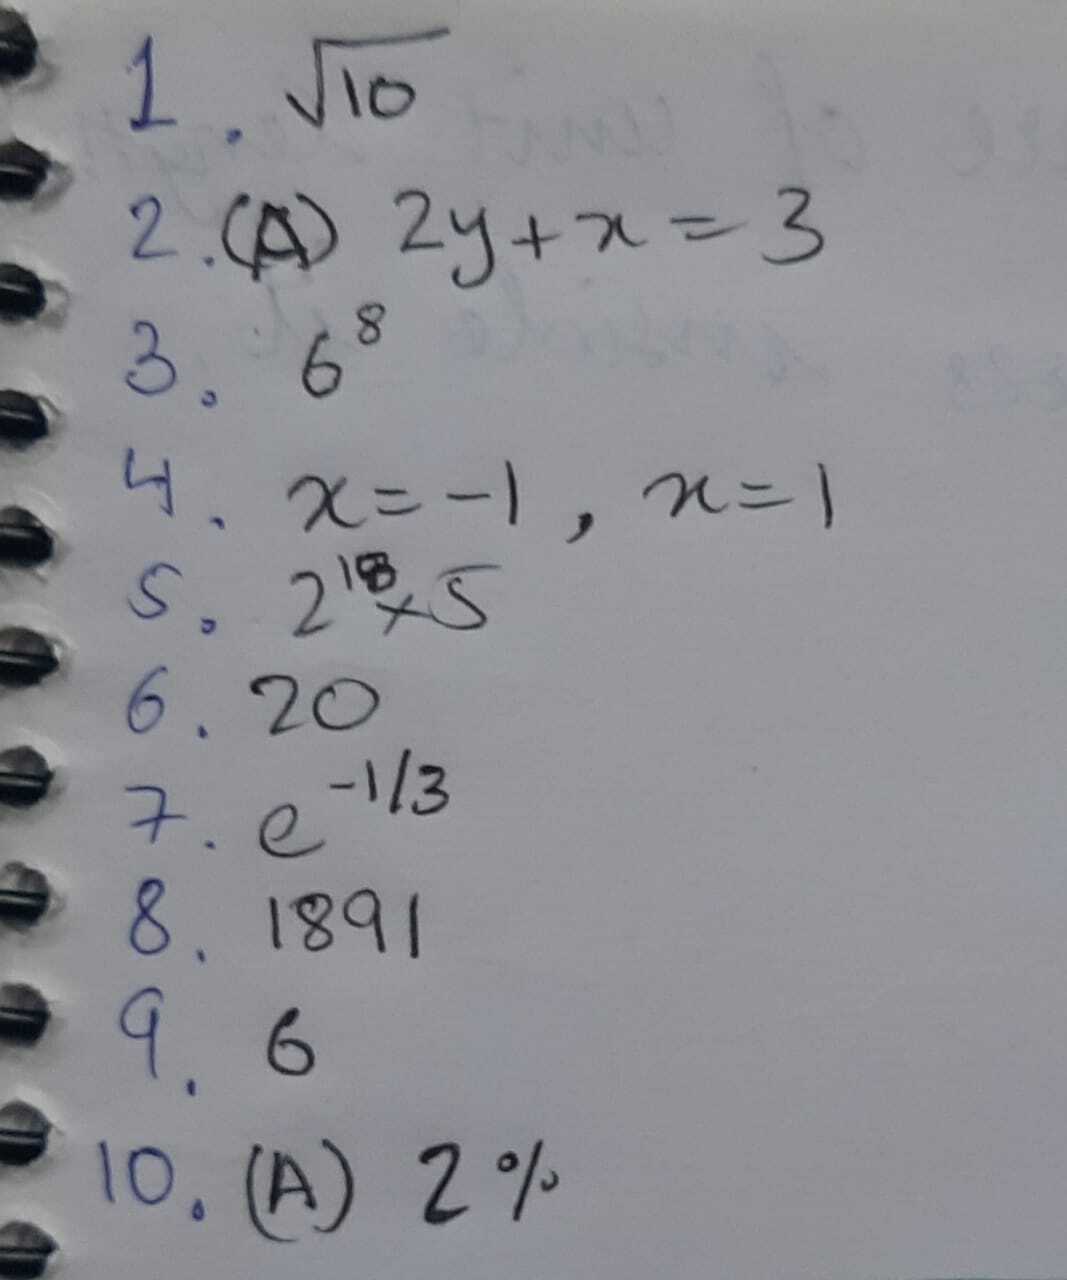 1. √10
2. (A) 2y + x = 3
3. 6⁸
4. x = -1, x = 1
5. 2¹⁸ × 5
6. 20
7. e^(-1/3)
8. 1891
9. 6
10. (A) 2%